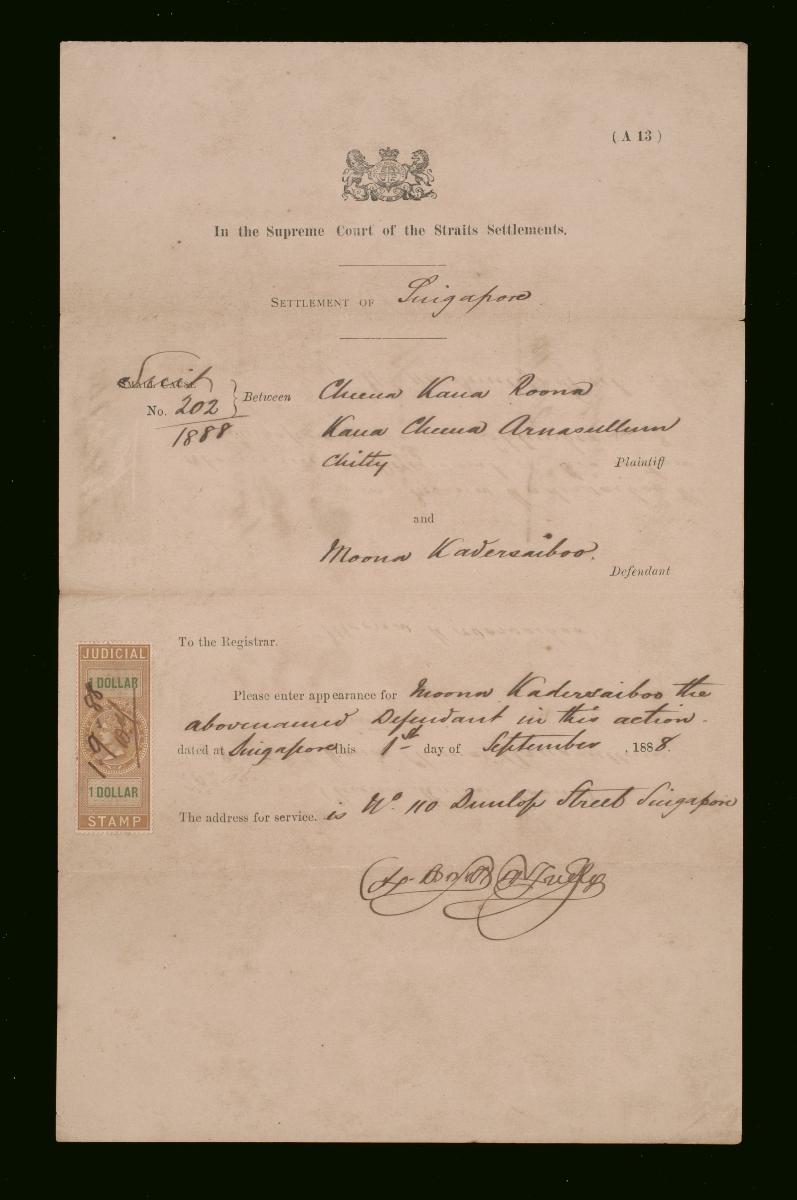 ( A 13 )
In the Supreme Court of the Straits Settlements.
SETTLEMENT OF Singapore
Suit
SMALL CAUSE.
No. 202
1888
Between Cheena Kana Roona
Kana Cheena Arnasellum
Chitty
Plaintiff
and
Moona Kadersaiboo.
Defendant
To the Registrar.
Please enter appearance for Moona Kadersaiboo the
abovenamed Defendant in this action.
dated at Singapore this 1st day of September , 1888.
The address for service. is No. 110 Dunlop Street Singapore
JUDICIAL
1 DOLLAR
1-9-88
1 DOLLAR
STAMP